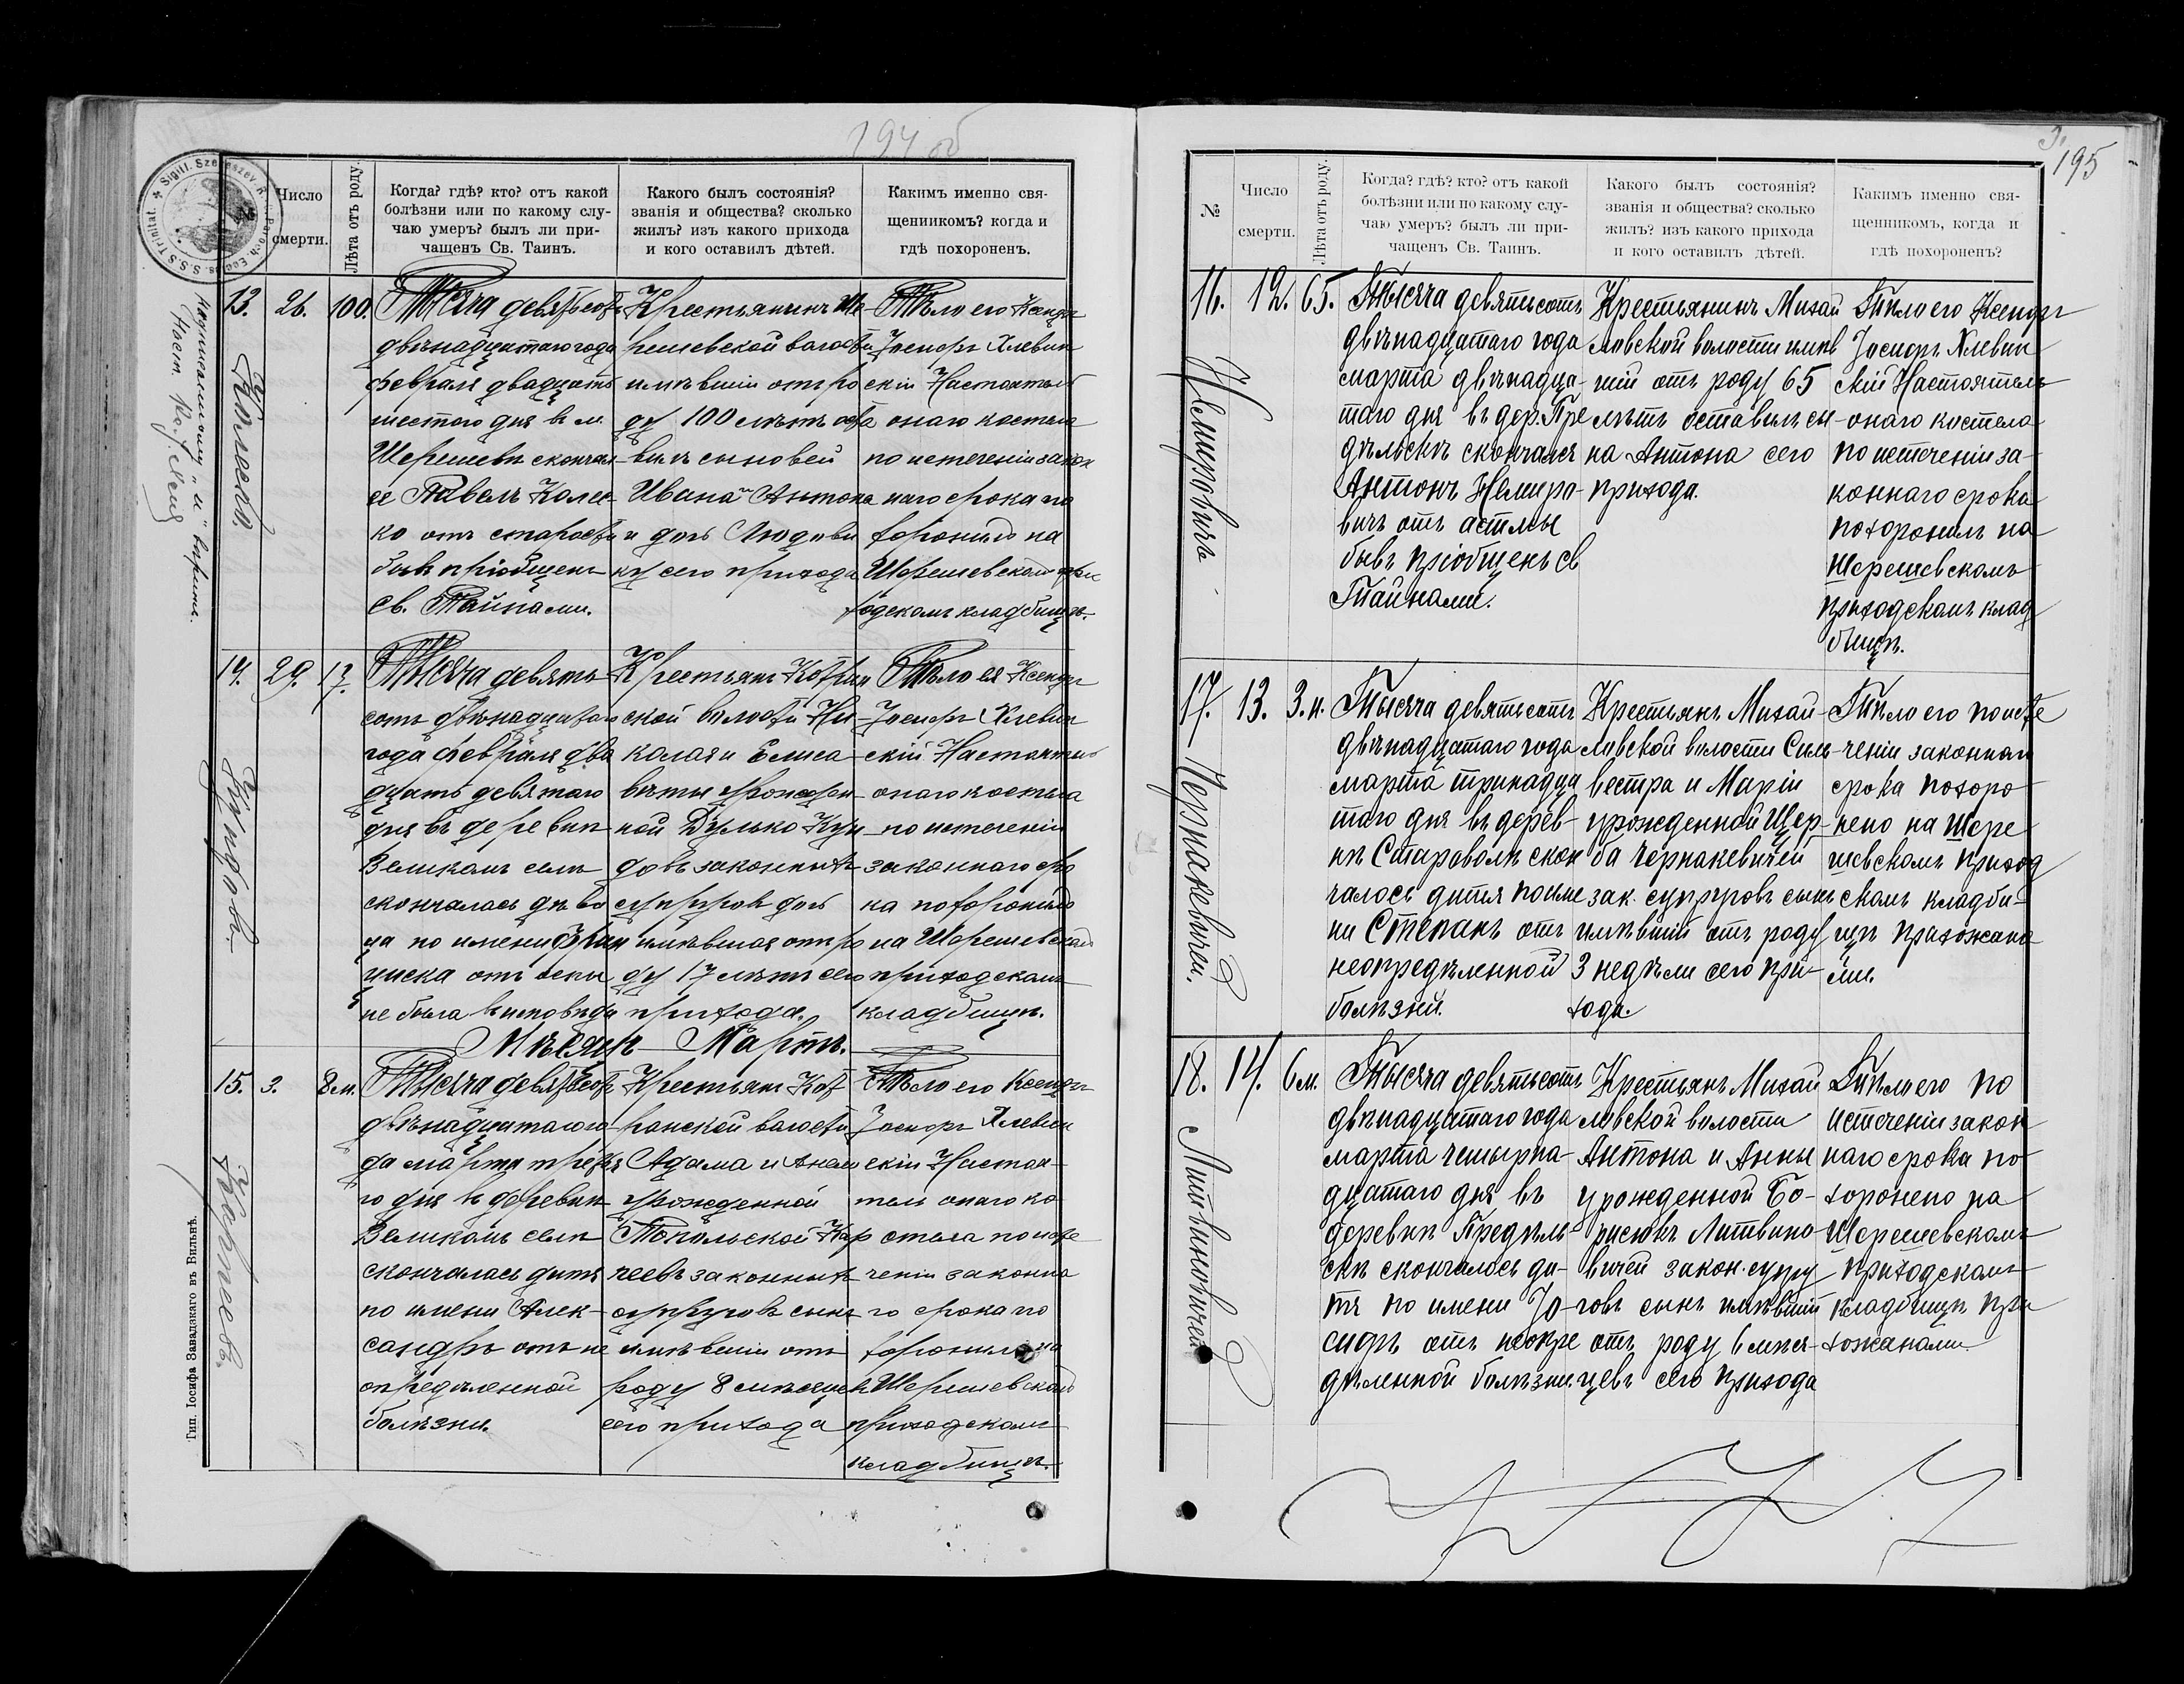 194 об
Sigill. Szereszev. R. Paroch. Eccles. S.S.S Trinitat.
№
Число
смерти.
Лѣта отъ роду.
Когда? гдѣ? кто? отъ какой
болѣзни или по какому слу-
чаю умеръ? былъ ли при-
чащенъ Св. Таинъ.
Какого былъ состоянія?
званія и общества? сколько
жилъ? изъ какого прихода
и кого оставилъ дѣтей.
Какимъ именно свя-
щенникомъ? когда и
гдѣ похороненъ.
13.
26.
100.
Колеско.
Надписанному „и“ вѣрить.
Тысяча девятьсотъ
двѣнадцатаго года
февраля двадцать
шестого дня въ м.
Шерешевѣ скончал
ся Павелъ Колес-
ко отъ старости
бывъ пріобщенъ
Св. Тайнами.
Крестьянинъ Ше-
решевской волости
имѣвшій отъ ро
ду 100 лѣтъ оста
вилъ сыновей
Ивана и Антона
и дочь Людови
ку сего прихода
Тѣло его Ксендзъ
Іосифъ Хлевин
скій Настоятель
онаго костела
по истеченіи закон
наго срока по
хоронилъ на
Шерешевскомъ при
ходскомъ кладбищѣ.
14.
29.
17.
Кундовъ.
Тысяча девять
сотъ двѣнадцатаго
года февраля два
дцать девятаго
дня въ деревнѣ
Великомъ селѣ
скончалась дѣви
ца по имени Фран
циска отъ оспы
не была въ исповѣди
Крестьянъ Котран
ской волости Ни-
колая и Елиса
веты урожден-
ной Дулько Кун
довъ законныхъ
супруговъ дочь
имѣвшая отъ ро
ду 17 лѣтъ сего
прихода.
Тѣло ея Ксендзъ
Іосифъ Хлевин
скій Настоятель
онаго костела
по истеченіи
законнаго сро
ка похоронилъ
на Шерешевскомъ
приходскомъ
кладбищѣ.
Мѣсяцъ Мартъ.
15.
3.
8 м.
Карнеевъ.
Тысяча девятьсотъ
двѣнадцатаго го
да марта третья
го дня въ деревнѣ
Великомъ селѣ
скончалась дитя
по имени Алек-
сандръ отъ не
опредѣленной
болѣзни.
Крестьянъ Кот
ранской волости
Адама и Анны
урожденной
Топольской Кар
неевъ законныхъ
супруговъ сынъ
имѣвшій отъ
роду 8 мѣсяцевъ
сего прихода
Тѣло его Ксендзъ
Іосифъ Хлевин
скій Настоя-
тель онаго ко
стела по исте
ченіи законна
го срока по
хоронилъ на
Шерешевскомъ
приходскомъ
кладбищѣ.
Тип. Іосифа Завадзкаго въ Вильнѣ.
195
№
Число
смерти.
Лѣта отъ роду.
Когда? гдѣ? кто? отъ какой
болѣзни или по какому слу-
чаю умеръ? былъ ли при-
чащенъ Св. Таинъ.
Какого былъ состоянія?
званія и общества? сколько
жилъ? изъ какого прихода
и кого оставилъ дѣтей.
Какимъ именно свя-
щенникомъ, когда и
гдѣ похороненъ?
16.
12.
65.
Немировичъ
Тысяча девятьсотъ
двѣнадцатаго года
марта двѣнадца-
таго дня въ дер. Пре
дѣльскъ скончался
Антонъ Немиро-
вичъ отъ астмы
бывъ пріобщенъ Св
Тайнами.
Крестьянинъ Михай
ловской волости имѣв
шій отъ роду 65
лѣтъ оставилъ сы-
на Антона сего
прихода.
Тѣло его Ксендзъ
Іосифъ Хлевин
скій Настоятель
онаго костела
по истеченіи за-
коннаго срока
похоронилъ на
Шерешевскомъ
приходскомъ клад
бищѣ.
17.
13.
3. н.
Чернакевичей.
Тысяча девятьсотъ
двѣнадцатаго года
марта тринадца
таго дня въ дерев-
нѣ Староволѣ скон
чалось дитя по име
ни Степанъ отъ
неопредѣленной
болѣзни.
Крестьянъ Михай-
ловской волости Силь
вестра и Маріи
урожденной Щер-
ба Чернакевичей
зак. супруговъ сынъ
имѣвшій отъ роду
3 недѣли сего при-
хода.
Тѣло его по исте
ченіи законнаго
срока похоро-
нено на Шере
шевскомъ приход
скомъ кладби-
щѣ прихожана
ми.
18.
14.
6 м.
Литвиновичей
Тысяча девятьсотъ
двѣнадцатаго года
марта четырна-
дцатаго дня въ
деревнѣ Предѣль
скѣ скончалось ди-
тя по имени Іо-
сифъ отъ неопре
дѣленной болѣзни.
Крестьянъ Михай
ловской волости
Антона и Анны
урожденной Бо-
рисюкъ Литвино
вичей закон. супру
говъ сынъ имѣвшій
отъ роду 6 мѣся-
цевъ сего прихода
Тѣло его по
истеченіи закон
наго срока по
хоронено на
Шерешевскомъ
приходскомъ
кладбищѣ при
хожанами.